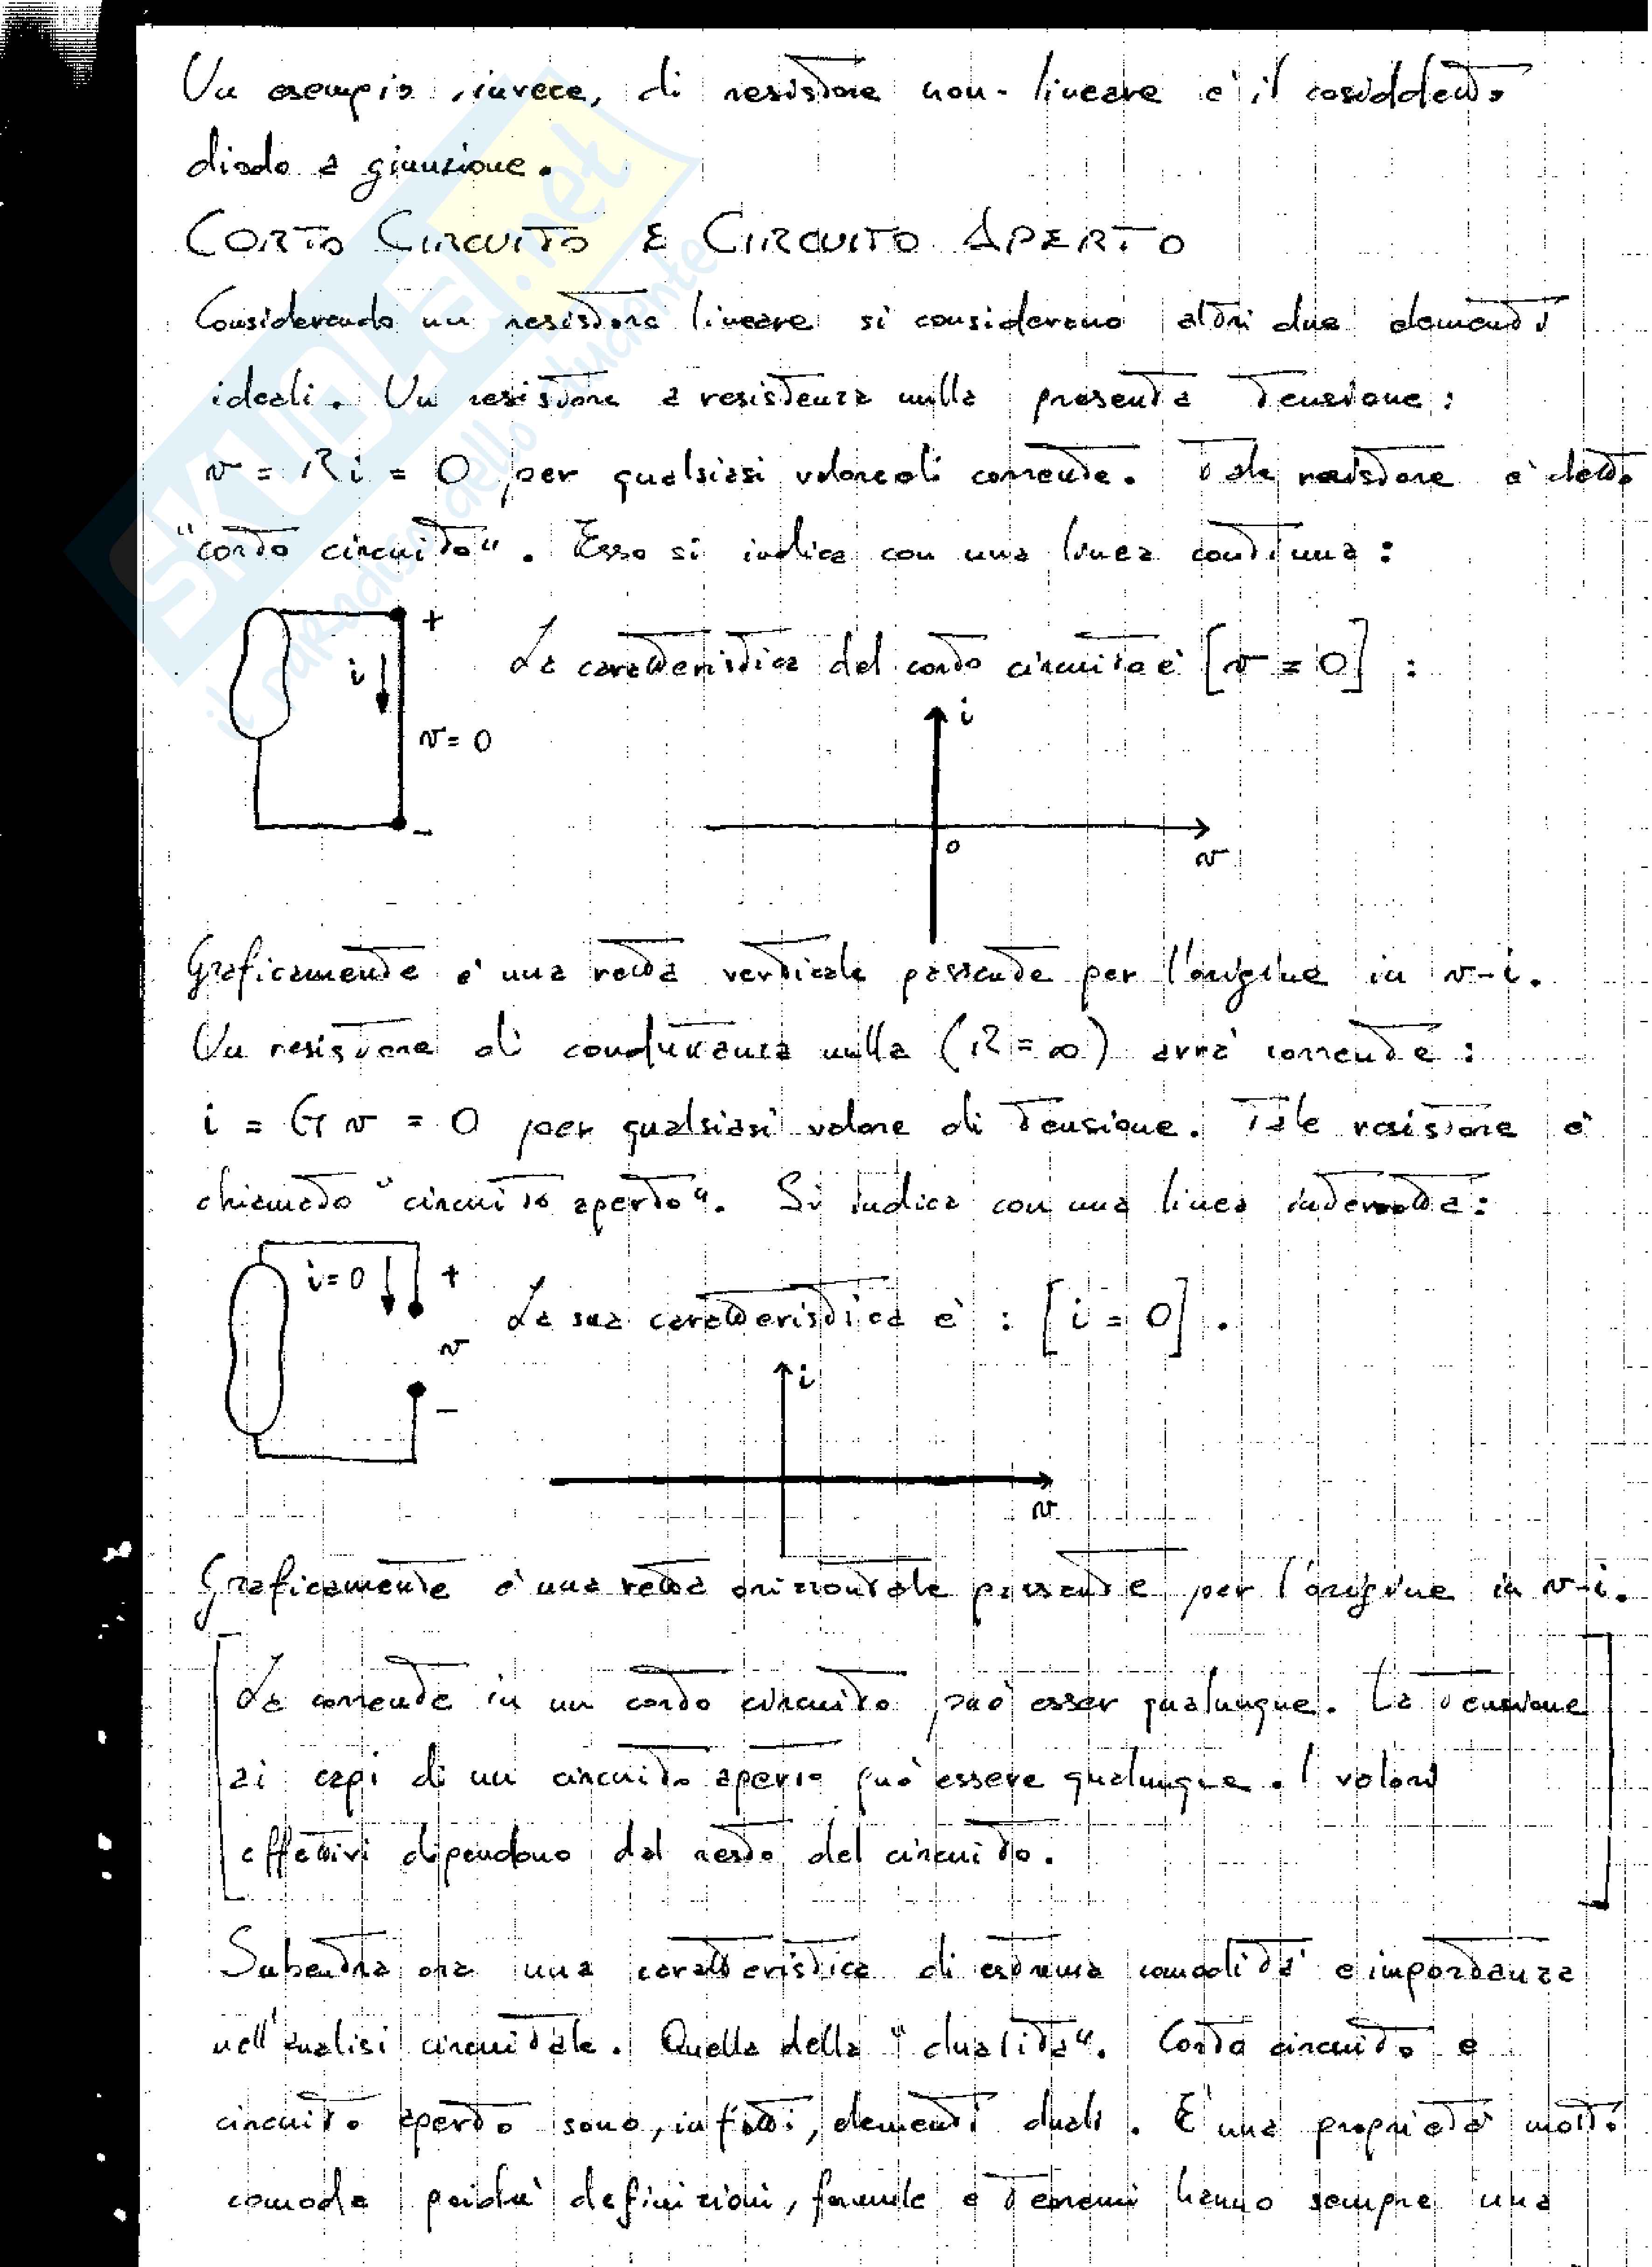 Un esempio, invece, di resistore non-lineare è il cosiddetto
diodo a giunzione.
CORTO CIRCUITO E CIRCUITO APERTO
Considerando un resistore lineare si considerano altri due elementi
ideali. Un resistore a resistenza nulla presenta tensione:
v = Ri = 0 per qualsiasi valore di corrente. Tale resistore è detto
"corto circuito". Esso si indica con una linea continua:
+
i
v = 0
-
La caratteristica del corto circuito è [v = 0] :
i
0
v
Graficamente è una retta verticale passante per l'origine in v-i.
Un resistore di conduttanza nulla (R = ∞) avrà corrente:
i = Gv = 0 per qualsiasi valore di tensione. Tale resistore è
chiamato "circuito aperto". Si indica con una linea interrotta:
i=0
+
v
-
La sua caratteristica è : [i = 0].
i
v
Graficamente è una retta orizzontale passante per l'origine in v-i.
La corrente in un corto circuito può esser qualunque. La tensione
ai capi di un circuito aperto può essere qualunque. I valori
effettivi dipendono dal resto del circuito.
Subentra ora una caratteristica di estrema comodità e importanza
nell'analisi circuitale. Quella della "dualità". Corto circuito e
circuito aperto sono, infatti, elementi duali. È una proprietà molto
comoda poiché definizioni, formule e teoremi hanno sempre una
SKUOLA.net
il paradiso dello studente